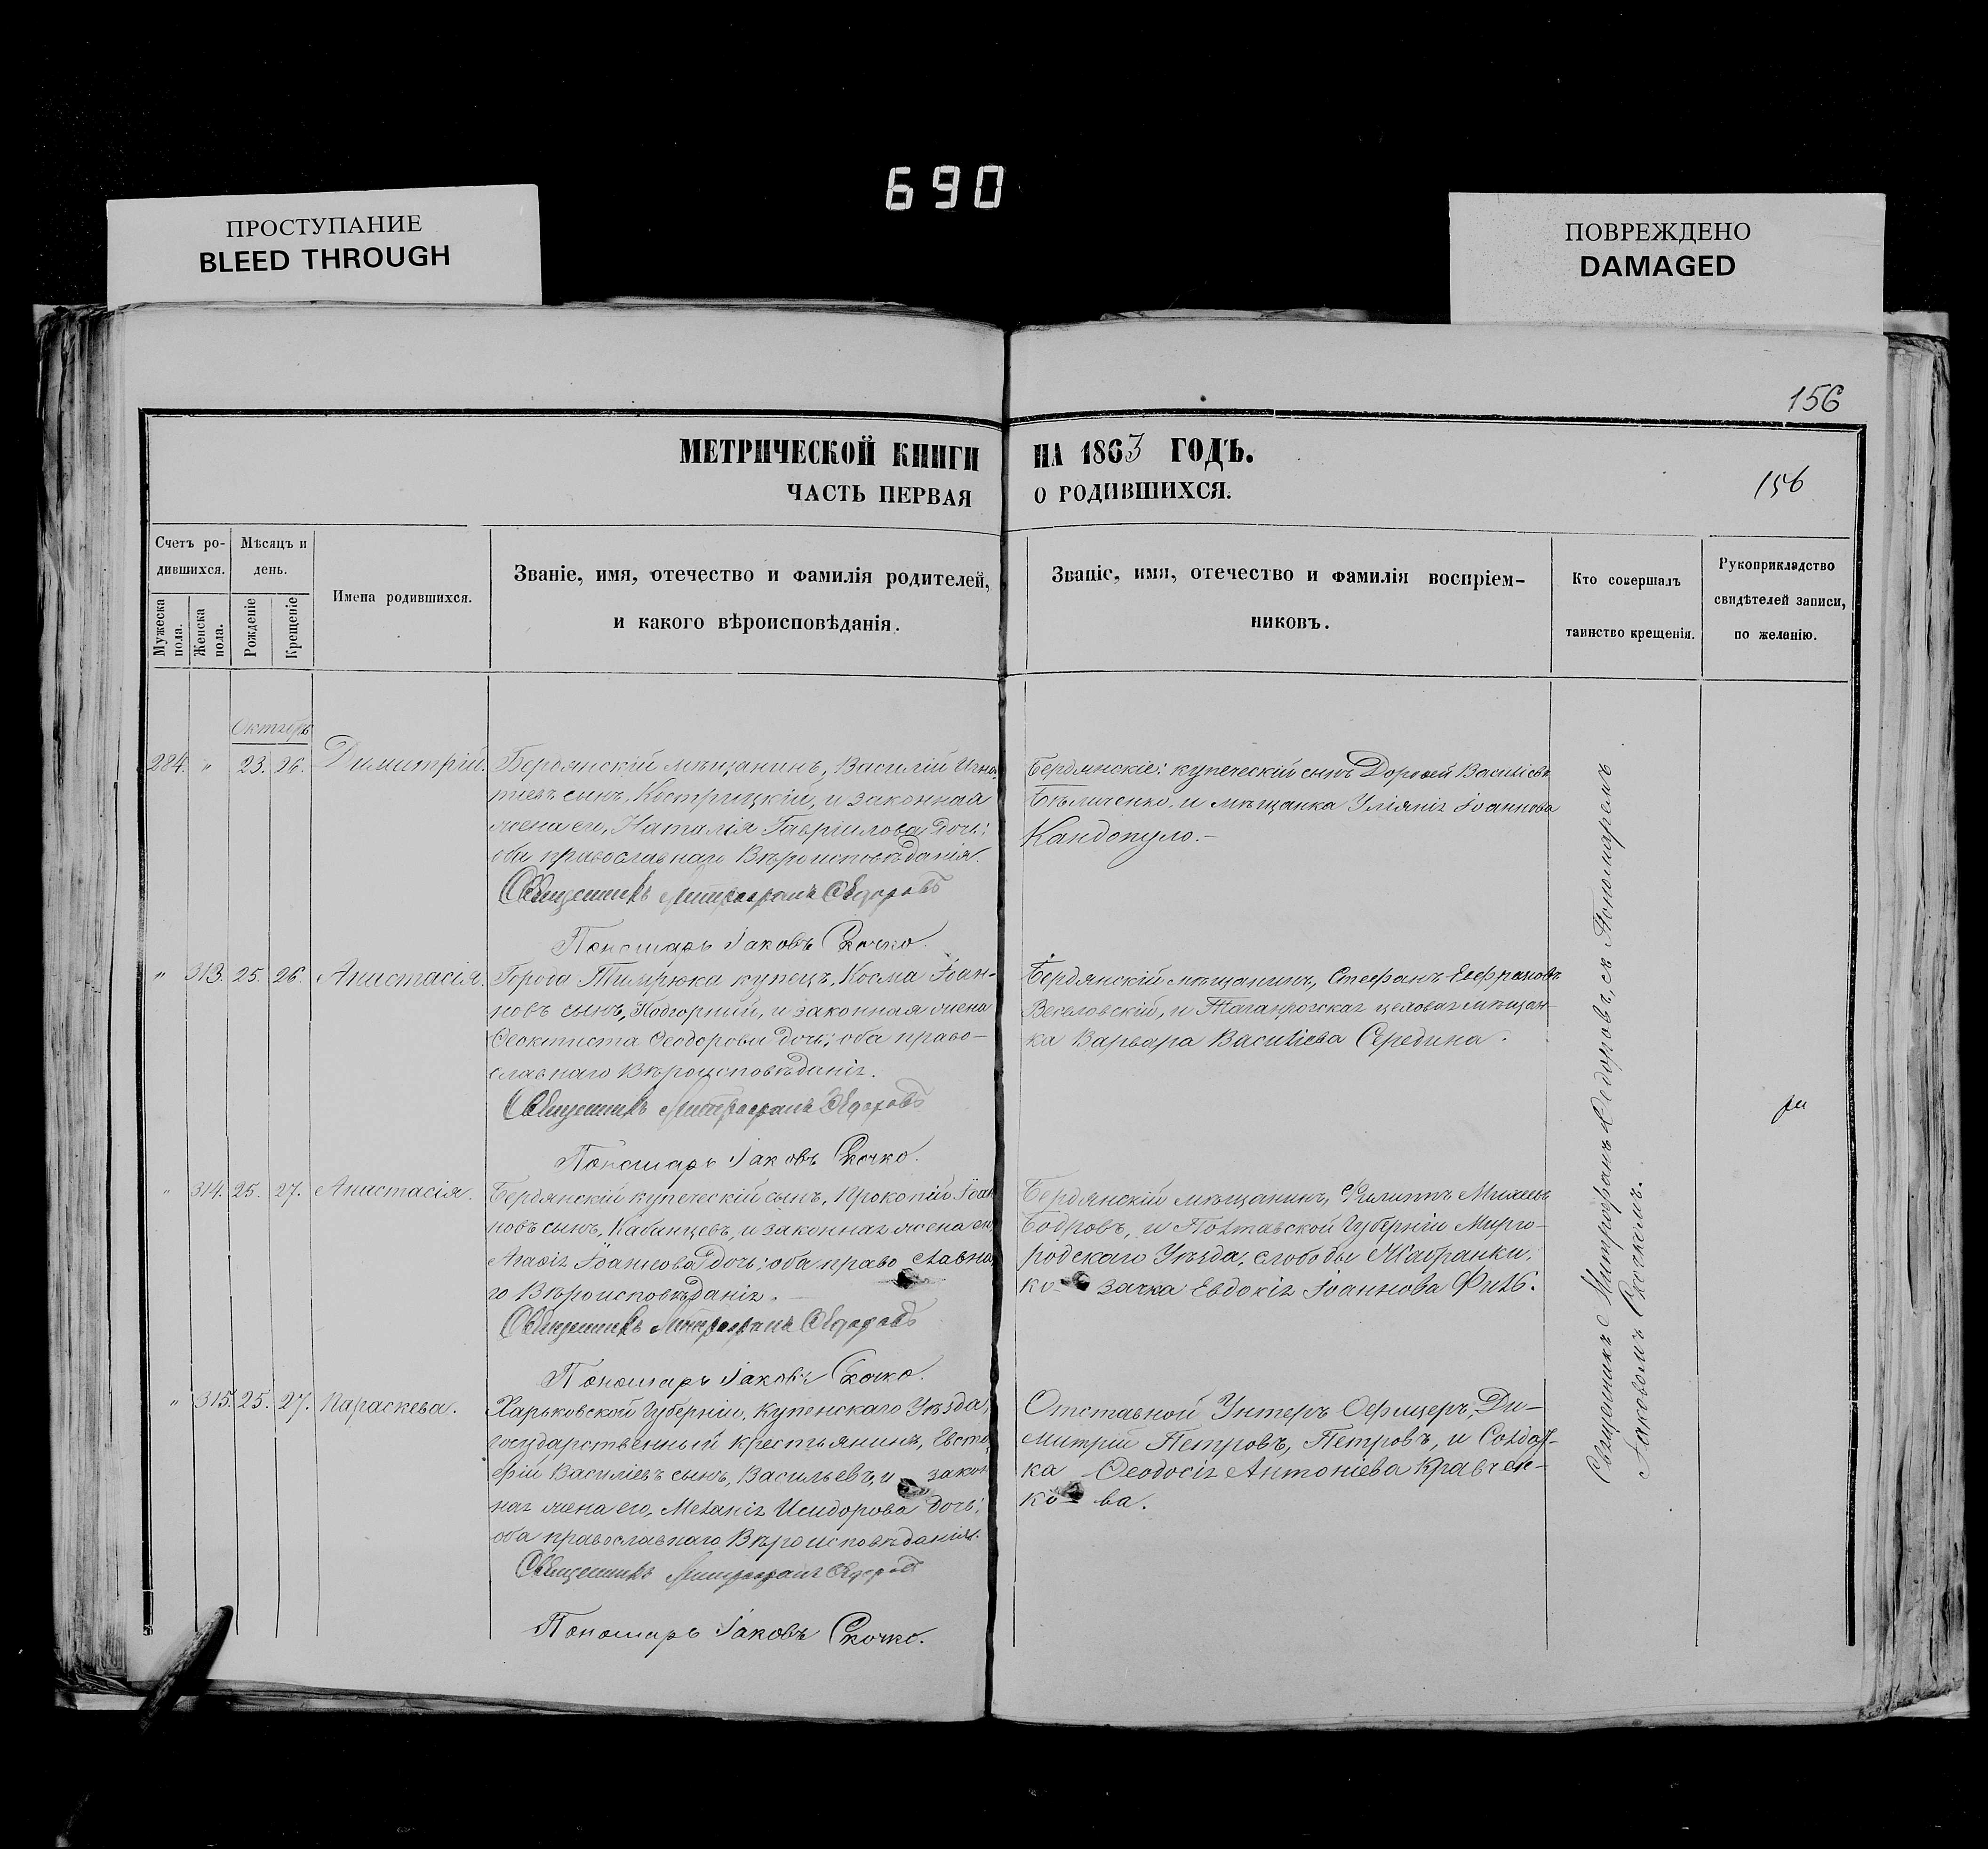 690
ПРОСТУПАНИЕ
BLEED THROUGH
ПОВРЕЖДЕНО
DAMAGED
156
МЕТРИЧЕСКОЙ КНИГИ НА 1863 ГОДЪ.
ЧАСТЬ ПЕРВАЯ О РОДИВШИХСЯ.
156
Счетъ ро-
дившихся.
Мужеска пола.
Женска пола.
Мѣсяцъ и
день.
Рожденіе
Крещеніе
Имена родившихся.
Званіе, имя, отечество и фамилія родителей,
и какого вѣроисповѣданія.
Званіе, имя, отечество и фамилія воспріем-
никовъ.
Кто совершалъ
таинство крещенія.
Рукоприкладство
свидѣтелей записи,
по желанію.
Октябрь
284. " 23. 26. Димитрій.
Бердянскій мѣщанинъ, Василій Игна-
тіевъ сынъ, Кострицкій, и законная
жена его, Наталія Гавріилова дочь;
оба православнаго Вѣроисповѣданія.
Священникъ Митрофанъ Ѳедоровъ
Пономарь Іаковъ Скочко.
Бердянскіе: купеческій сынъ Дороѳей Василіевъ
Бѣличенко, и мѣщанка Уліянія Іоаннова
Кандопуло.-
" 313. 25. 26. Анастасія.
Города Тимрюка купецъ, Косма Іоан-
новъ сынъ, Подгорній, и законная жена
Ѳеоктиста Ѳеодорова дочь; оба право-
славнаго Вѣроисповѣданія.
Священникъ Митрофанъ Ѳедоровъ
Пономарь Іаковъ Скочко.
Бердянскій мѣщанинъ, Стефанъ
Веселовскій, и Таганрожская цеховая мѣщан-
ка Варвара Василіева Середина.
" 314. 25. 27. Анастасія.
Бердянскій купеческій сынъ, Прокопій Іоан
новъ сынъ, Кабанцевъ, и законная жена его
Агаѳія Іоаннова дочь; оба право славна
го Вѣроисповѣданія.
Священникъ Митрофанъ Ѳедоровъ
Пономарь Іаковъ Скочко.
Бердянскій мѣщанинъ, Филиппъ Михеевъ
Бодровъ, и Полтавской Губерніи Мирго-
родскаго Уѣзда, слободы
ко- зачка Евдокія Іоаннова
" 315. 25. 27. Параскева.
Харьковской Губерніи, Купенскаго Уѣзда,
государственный крестьянинъ, Евста
фій Василіевъ сынъ, Васильевъ, и закон
ная жена его, Меланія Исидорова дочь;
оба православнаго Вѣроисповѣданія.
Священникъ Митрофанъ Ѳедоровъ
Пономарь Іаковъ Скочко.
Отставной Унтеръ Офицеръ, Ди-
митрій Петровъ, Петровъ, и Солдат-
ка Ѳеодосія Антоніева Кравчен-
ко- ва.
Священникъ Митрофанъ Ѳедоровъ, съ Пономаремъ
Іаковомъ Скочкомъ.